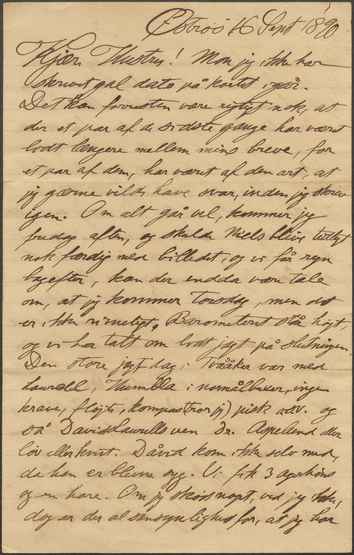 Øströö 16 Sept 1890
Kjære Hustru! Mon jeg ikke har
skrevet gal dato på kortet igår.
Det kan forresten være rigtigt nok, at
der et par af de sidste gange har været
lidt længere mellem mine breve, for
et par af dem, har været af den art, at
jeg gjærne vilde have svar, inden jeg skrev
igen. Om alt går vel, kommer jeg
fredag aften, og skulde Niels blive tidligt
nok færdig med billedet, og vi får regn
bagefter, kan der endda være tale
om, at jeg kommer torsdag, men det
er ikke rimeligt. Barometeret står højt,
og vi har talt om lidt jagt på slutningen.
Den store jagtdag i Tvååker var med
Laurell, Humbla i
krave, fløjte, kompas pisk osv. og
så David Laurells ven Dr. Aspelund der
lön David kom ikke selv med,
da han er blevet syg. Vi fik 3 agerhøns
og en hare. Om jeg skjøs noget, ved jeg ikke,
dog er der al sandsynlighed for, at jeg har